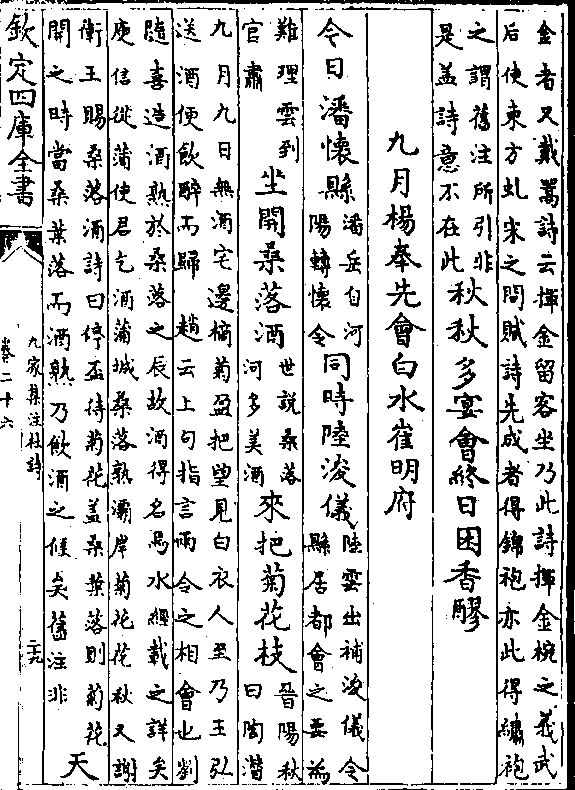 金者又戴暠詩云揮金留客坐乃此詩揮金椀之義武
后使東方虬宋之問賦詩先成者得錦袍亦此得繡袍
之謂舊注所引非
是蓋詩意不在此
秋秋多宴會終日困香醪
九月楊奉先會白水崔明府
今日潘懷縣
潘岳自河
陽轉懷令
同時陸浚儀
陸雲出補浚儀令
縣居都會之要爲
難理雲到
官肅
坐開桑落酒
世説桑落
河多美酒
來把菊花枝
晉陽秋
曰陶潛
九月九日無酒宅邊摘菊盈把望見白衣人至乃王弘
送酒便飲醉而歸 趙云上句指言兩令之相會也劉
隨喜造酒熟於桑落之辰故酒得名焉水經載之詳矣
庾信從蒲使君乞酒蒲城桑落熟灞岸菊花花秋又謝
衛王賜桑落酒詩曰停盃待菊花蓋桑葉落則菊花
開之時當桑葉落而酒熟乃飲酒之候矣舊注非
天
欽定四庫全書
九家集注杜詩
卷二十六
二十九